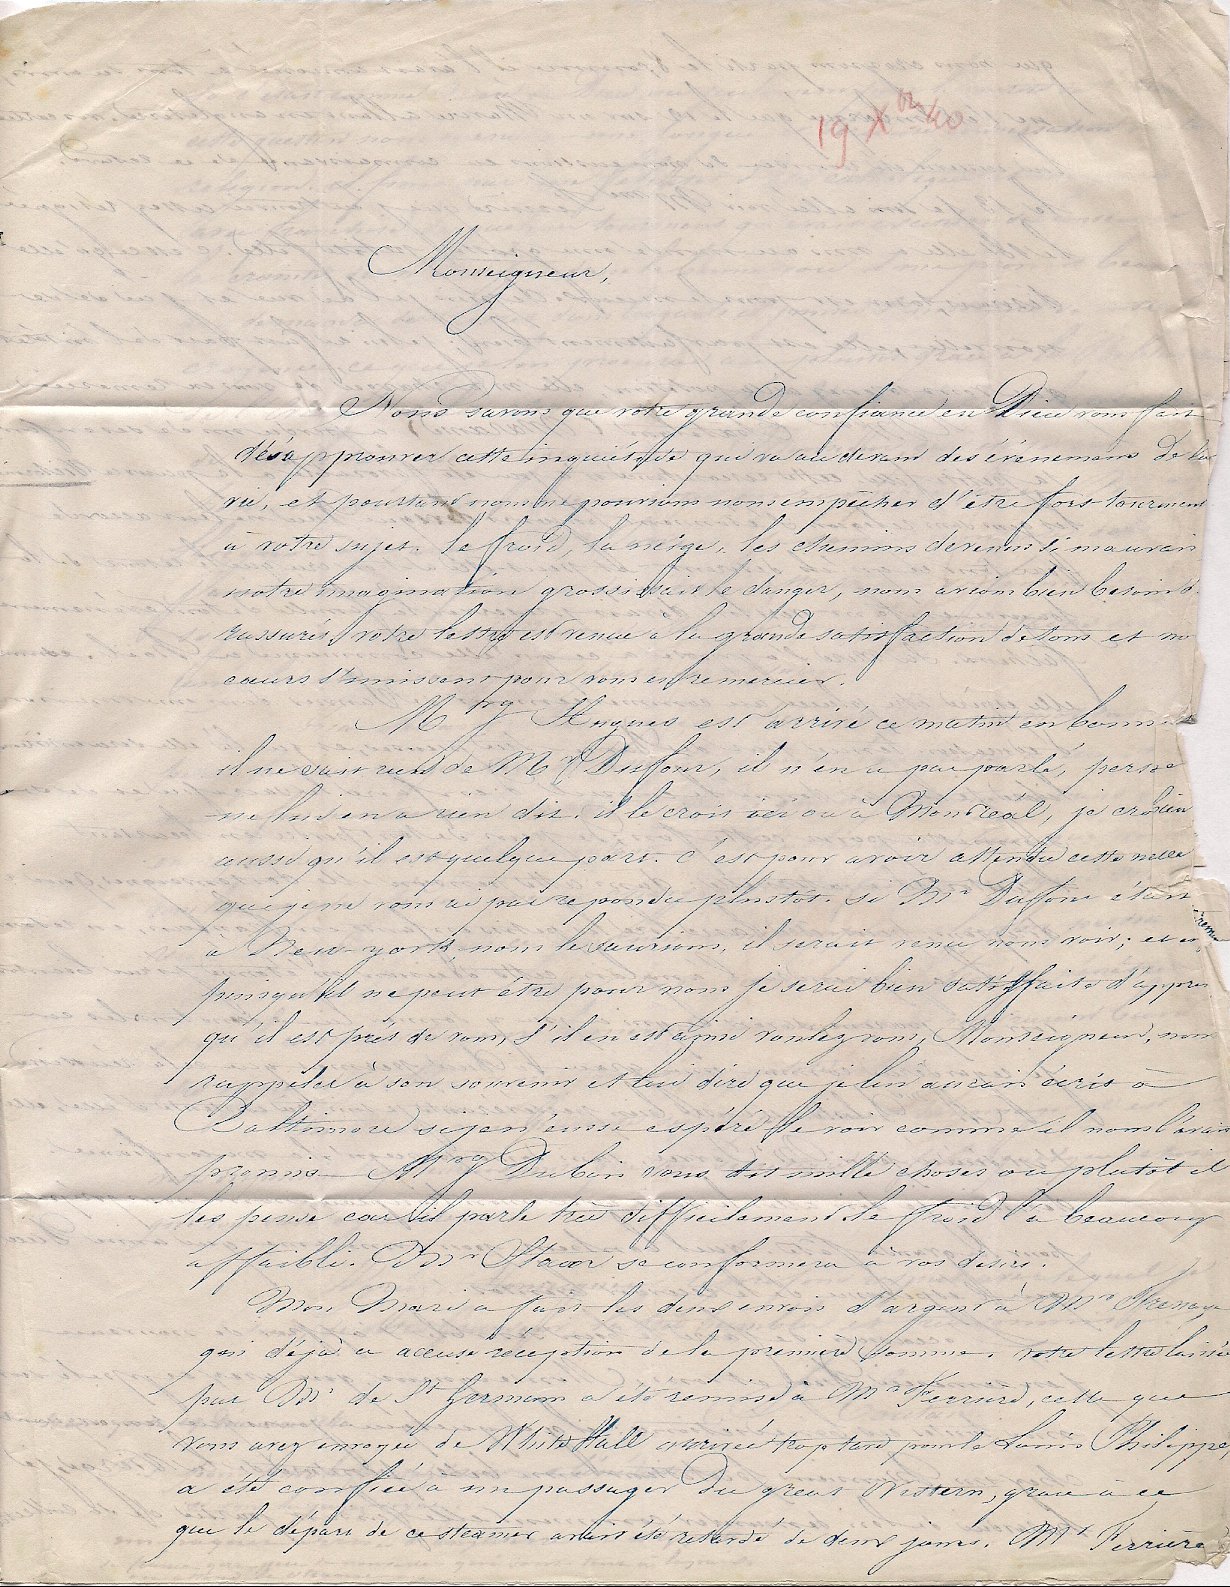 19 Xbre/40
Monseigneur,
Nous savons que votre grande confiance en Dieu vous fait
désapprouver cette inquiétude qui va au devant des évènemens de la
vie, et pourtant nous ne pouvions nous empêcher d'être fort tourmen
à votre sujet. le froid, la neige, les chemins devenus si mauvais
notre imagination grossissait le danger, nous avions bien besoin d'
rassurés, votre lettre est venue à la grande satisfaction de tous et no
cœurs s'unissent pour vous en remercier.
Mrg Hugues est arrivé ce matin en bonne
il ne sait rien de Mr Dufour, il n'en a pas parlé, perso
ne lui en a rien dit. il le croit ici ou à Montréal, je crois bien
aussi qu'il est quelque part. c'est pour avoir attendu cette nelle
que je ne vous ai pas répondu plustot. si Mr Dufour était
à New-york, nous le saurions, il serait venu nous voir; et
puisqu'il ne peut être pour nous je serai bien satisfaite d'appren
qu'il est près de vous, s'il en est ainsi voulez vous, Monseigneur, nous
rappeler à son souvenir et lui dire que je lui aurais écris à
Baltimore si je n'eusse espéré le voir comme il nous l'avait
promis — Mrg Dubois vous dit mille choses ou plutôt il
les pense car il parle très difficilement le froid l'a beaucoup
affaibli. Mr Stacor se conformera à vos désirs.
Mon Mari a fait les deux envois d'argent à Mr Frenaye
qui déjà a accusé réception de la première somme. votre lettre laissée
par Mr de St Germain a été remise à Mr Ferrière, celle que
vous avez envoyée de White Hall arrivée trop tard pour le Louis Philippe,
a été confiée à un passager du great Western, grace à ce
que le départ de ce steamer avait été retardé de deux jours. Mr Ferrière